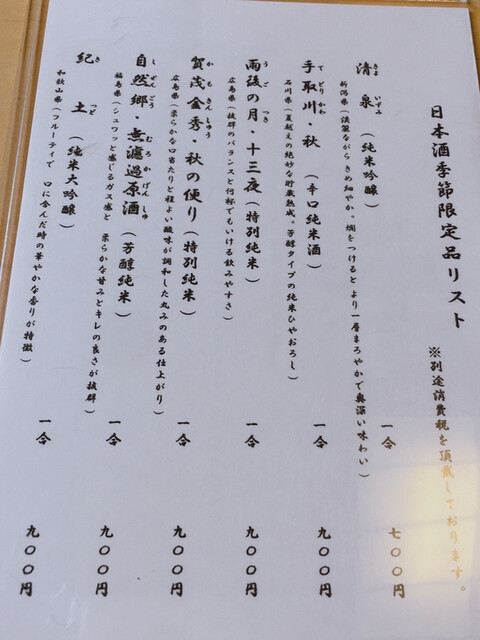 日本酒季節限定品リスト
※別途消費税を頂戴しております。
きよ いずみ
清 泉 (純米吟醸) 一合 七〇〇円
新潟県(淡麗ながらきめ細やか。燗をつけるとより一層まろやかで奥深い味わい)
てどりかわ
手取川・秋 (辛口純米酒) 一合 九〇〇円
石川県(夏越えの絶妙な貯蔵熟成。芳醇タイプの純米ひやおろし)
うご つき
雨後の月・十三夜(特別純米) 一合 九〇〇円
広島県(抜群のバランスと何杯でもいける飲みやすさ)
かもきんしゅう
賀茂金秀・秋の便り(特別純米) 一合 九〇〇円
広島県(柔らかな口当たりと程よい酸味が調和した丸みのある仕上がり)
しぜんごう むろかげんしゅ
自然郷・無濾過原酒(芳醇純米) 一合 九〇〇円
福島県(シュワッと感じるガス感と 柔らかな甘みとキレの良さが抜群)
きっど
紀 土 (純米大吟醸) 一合 九〇〇円
和歌山県(フルーティで 口に含んだ時の華やかな香りが特徴)